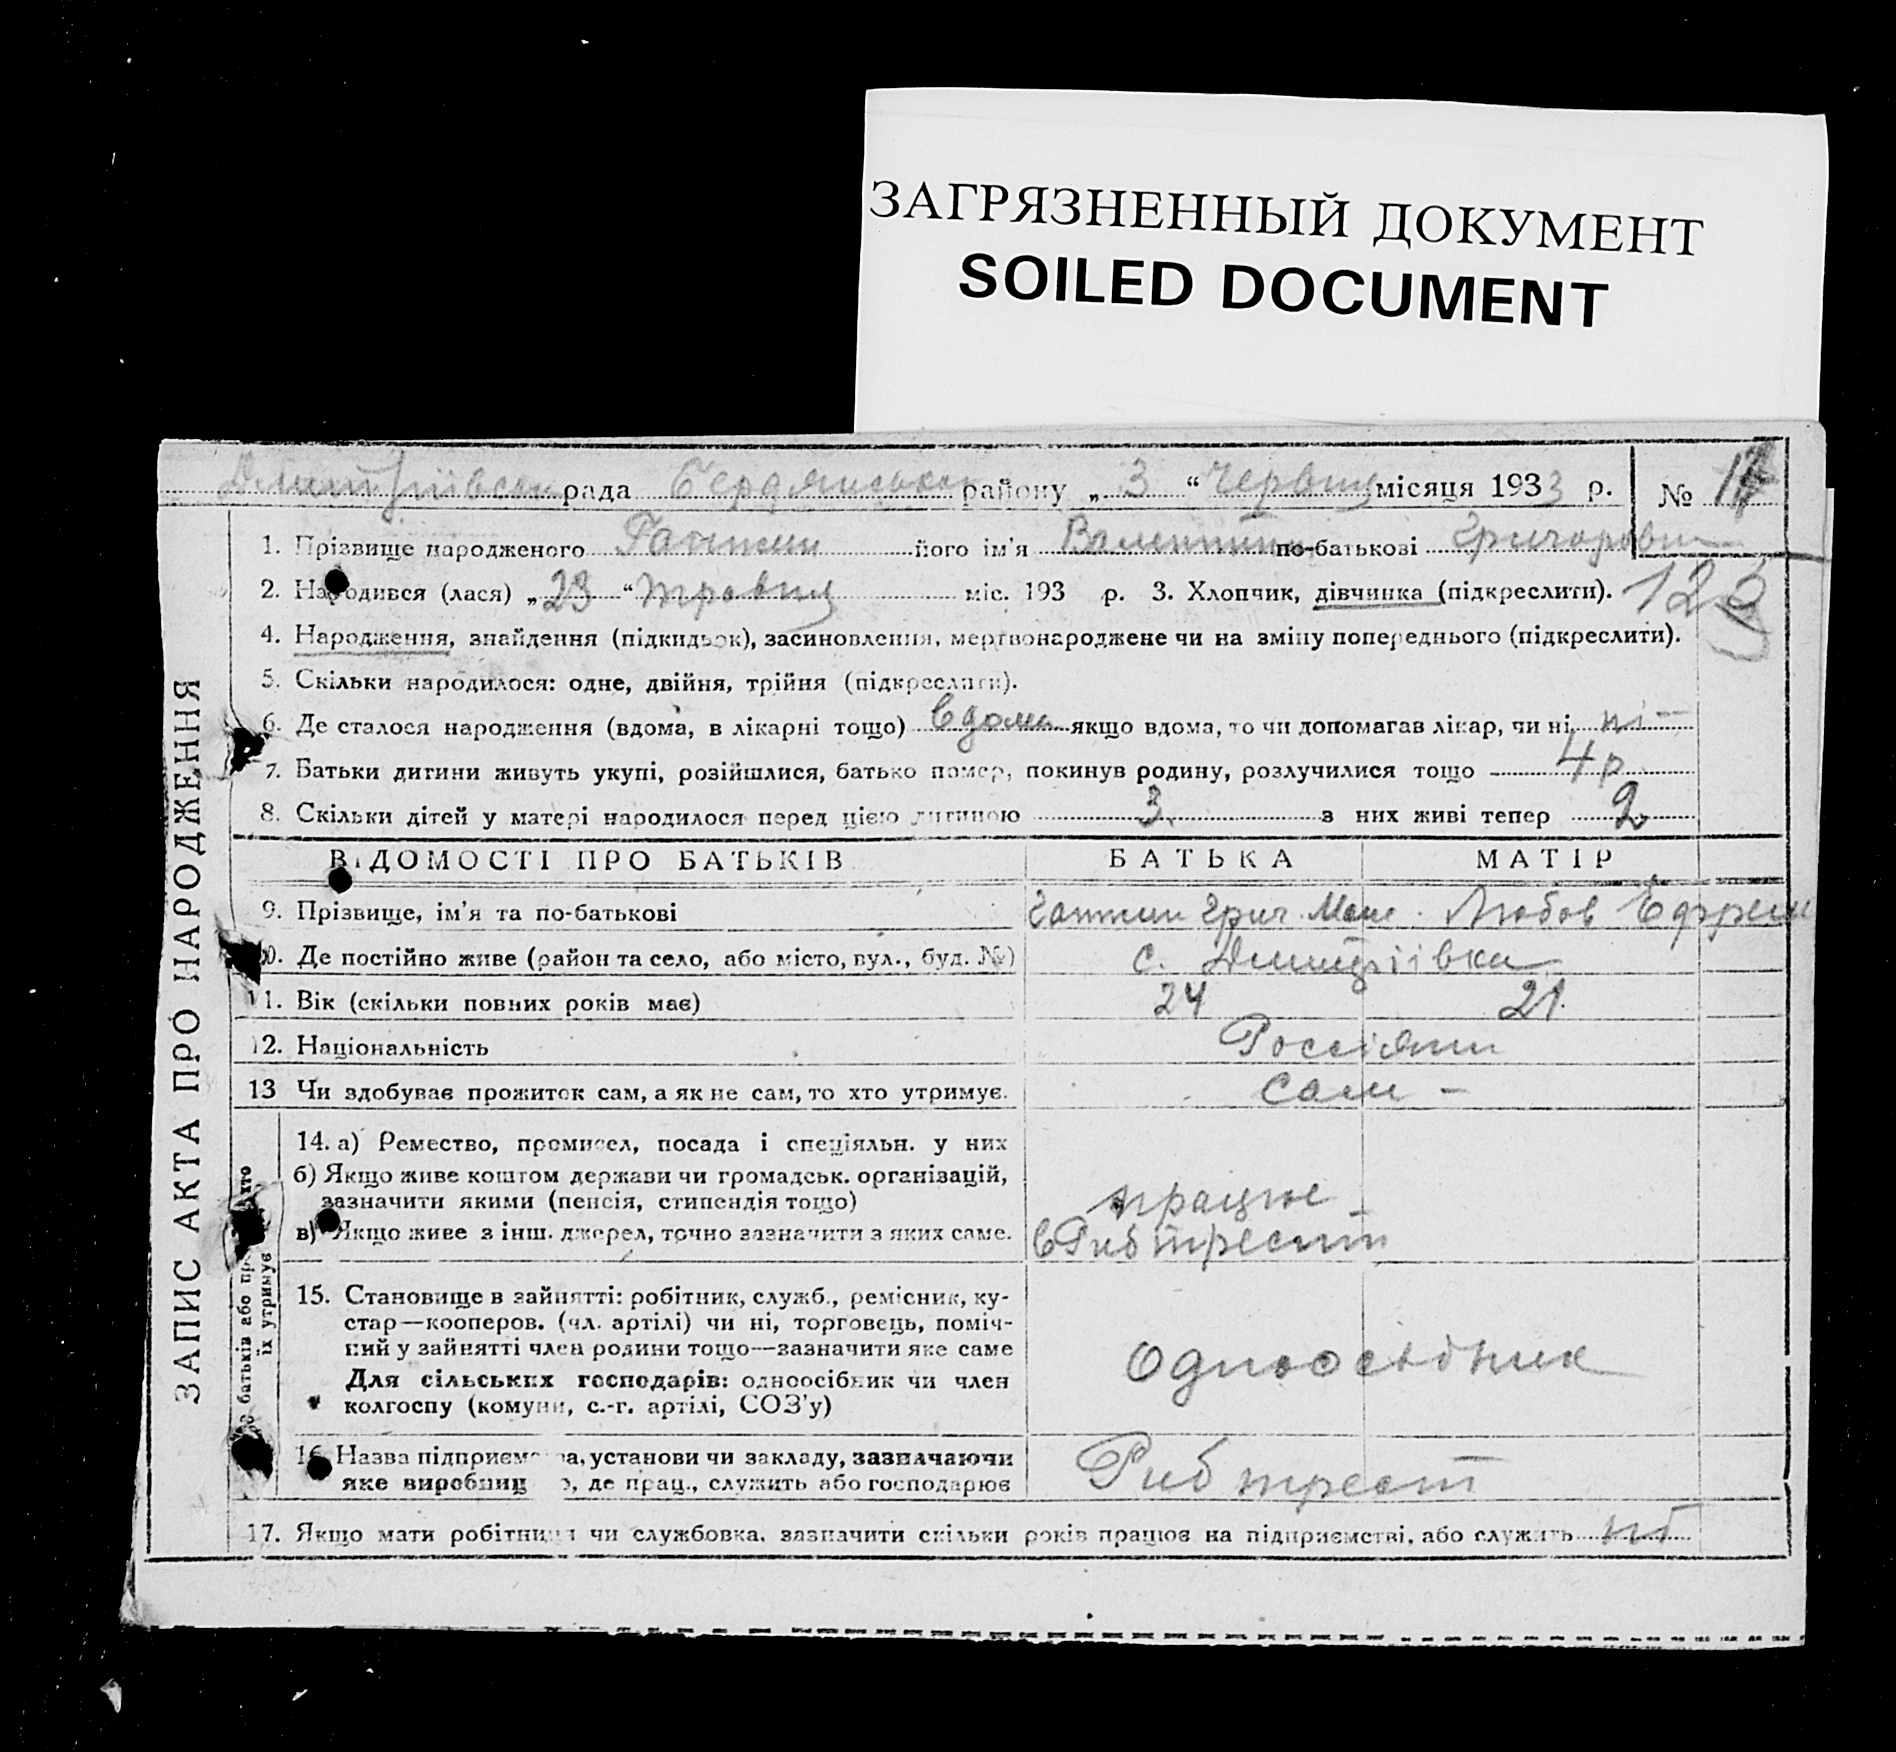 ЗАГРЯЗНЕННЫЙ ДОКУМЕНТ
SOILED DOCUMENT
рада Бердянськ району „ 3 “ Червня місяця 1933 р. № 17
1. Прізвище народженого його ім'я Валентина по-батькові Григоровн
2. Народився (лася) „ 23 “ травня міс. 193 р. 3. Хлопчик, дівчинка (підкреслити). 123
4. Народження, знайдення (підкидьок), засиновлення, мертвонароджене чи на зміну попереднього (підкреслити).
5. Скільки народилося: одне, двійня, трійня (підкреслити).
6. Де сталося народження (вдома, в лікарні тощо) вдома якщо вдома, то чи допомагав лікар, чи ні ні –
7. Батьки дитини живуть укупі, розійшлися, батько помер, покинув родину, розлучилися тощо 4 р
8. Скільки дітей у матері народилося перед цією дитиною 3. з них живі тепер 2
ВІДОМОСТІ ПРО БАТЬКІВ БАТЬКА МАТІР
9. Прізвище, ім'я та по-батькові Григ. Любов Ефрем
10. Де постійно живе (район та село, або місто, вул., буд. №) с. Дмитріівка
11. Вік (скільки повних років має) 24 21.
12. Національність Россіяни
13 Чи здобуває прожиток сам, а як не сам, то хто утримує. Сам –
14. а) Ремество, промисел, посада і спеціяльн. у них
б) Якщо живе коштом держави чи громадськ. організацій,
зазначити якими (пенсія, стипендія тощо) працює
в) Якщо живе з інш. джерел, точно зазначити з яких саме. в Рибтресті
15. Становище в зайнятті: робітник, служб., ремісник, ку-
стар—кооперов. (чл. артілі) чи ні, торговець, поміч-
ний у зайнятті член родини тощо—зазначити яке саме
Для сільських господарів: одноосібник чи член
колгоспу (комуни, с.-г. артілі, СОЗ'у) Одноосібник
16. Назва підприємства, установи чи закладу, зазначаючи
яке виробництво, де прац., служить або господарює Риб трест
17. Якщо мати робітниця чи службовка, зазначити скільки років працює на підприємстві, або служить
ЗАПИС АКТА ПРО НАРОДЖЕННЯ
батьків або
їх утримує